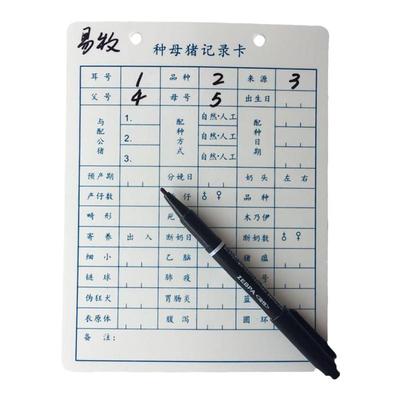 易牧
种母猪记录卡
耳号 1 品种 2 来源 3
父号 4 母号 5 出生日
与配公猪 1. 2. 3. 配种方式 自然·人工 自然·人工 自然·人工 配种日期
预产期 分娩日 奶头 左 右
产仔数 仔 ♂ ♀ 品种
畸形 死 木乃伊
寄养 出 入 断奶日 断奶数 ♂ ♀
细小 乙脑 猪瘟
链球 肺疫
伪狂犬 胃肠炎 蓝
衣原体 腹泻 圆环
备注:
ZEBPA